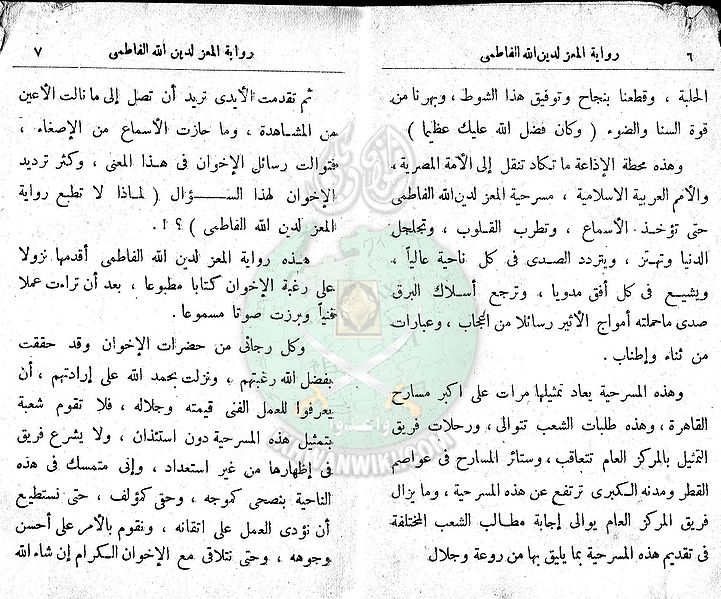 رواية المعز لدين الله الفاطمى ٦
الحلبة ، وقطعنا بنجاح وتوفيق هذا الشوط ، وبهرنا من
قوة السنا والضوء ( وكان فضل الله عليك عظيما )
وهذه محطة الإذاعة ما تكاد تنقل إلى الأمة المصرية ،
والأمم العربية الاسلامية ، مسرحية المعز لدين الله الفاطمى
حتى تؤخذ الأسماع ، وتطرب القلوب ، وتجلجل
الدنيا وتهتز ، ويتردد الصدى فى كل ناحية عالياً ،
ويشيع فى كل أفق مدويا ، وترجع أسلاك البرق
صدى ماحملته أمواج الأثير رسائلا من إعجاب ، وعبارات
من ثناء وإطناب .
وهذه المسرحية يعاد تمثيلها مرات على اكبر مسارح
القاهرة ، وهذه طلبات الشعب تتوالى ، ورحلات فريق
التمثيل بالمركز العام تتعاقب ، وستائر المسارح فى عواصم
القطر ومدنه الكبرى ترتفع عن هذه المسرحية ، وما يزال
فريق المركز العام يوالى إجابة مطالب الشعب المختلفة
فى تقديم هذه المسرحية بما يليق بها من روعة وجلال
رواية المعز لدين الله الفاطمى ٧
ثم تقدمت الأيدى تريد أن تصل إلى ما نالت الأعين
من المشاهدة ، وما حازت الأسماع من الإصغاء ،
فتوالت رسائل الإخوان فى هذا المعنى ، وكثر ترديد
الإخوان لهذا السؤال ( لماذا لا تطبع رواية
المعز لدين الله الفاطمى ) ؟ ! .
هذه رواية المعز لدين الله الفاطمى أقدمها نزولا
على رغبة الإخوان كتابا مطبوعا ، بعد أن تراءت عملا
فنياً وبرزت صوتا مسموعا .
وكل رجائى من حضرات الإخوان وقد حققت
بفضل الله رغبتهم ، ونزلت بحمد الله على إرادتهم ، أن
يعرفوا للعمل الفنى قيمته وجلاله ، فلا تقوم شعبة
بتمثيل هذه المسرحية دون استئذان ، ولا يشرع فريق
فى إظهارها من غير استعداد ، وإنى متمسك فى هذه
الناحية بنصحى كموجه ، وحق كمؤلف ، حتى نستطيع
أن نؤدى العمل على اتقانه ، ونقوم بالأمر على أحسن
وجوهه ، وحتى نتلاقى مع الإخوان الكرام إن شاء الله
وأعدوا
IKHWANWIKI.COM